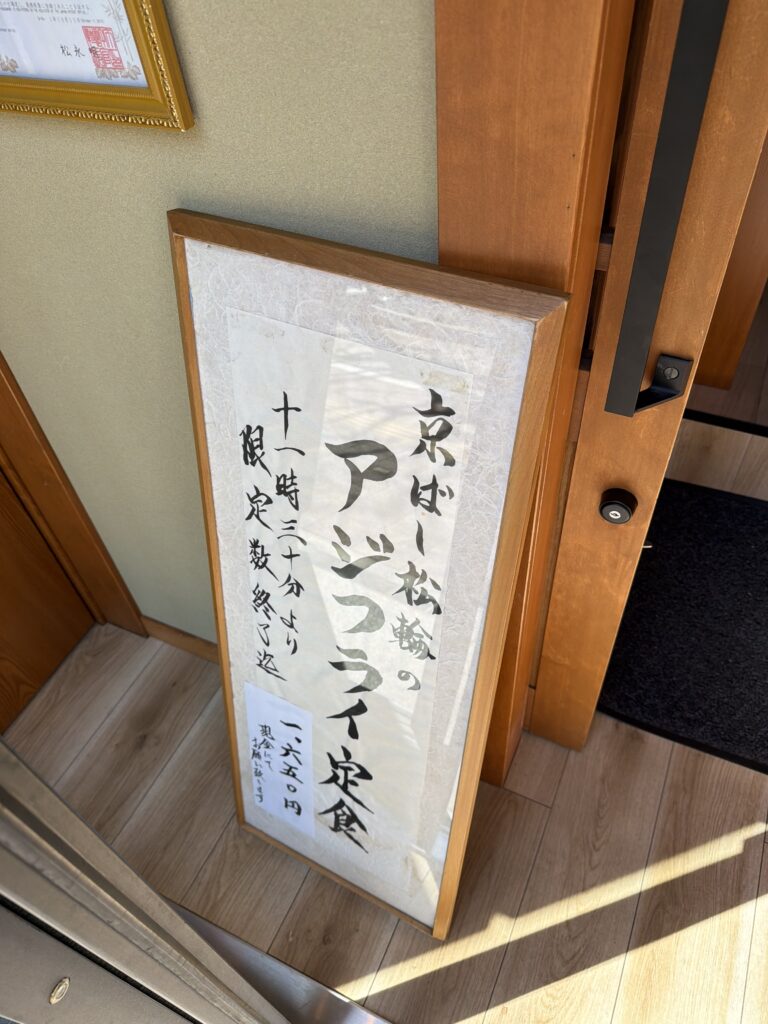 京ばし松輪の
アジフライ定食
十一時三十分より
限定数終了迄
一、六五〇円
現金にて
お願い致します